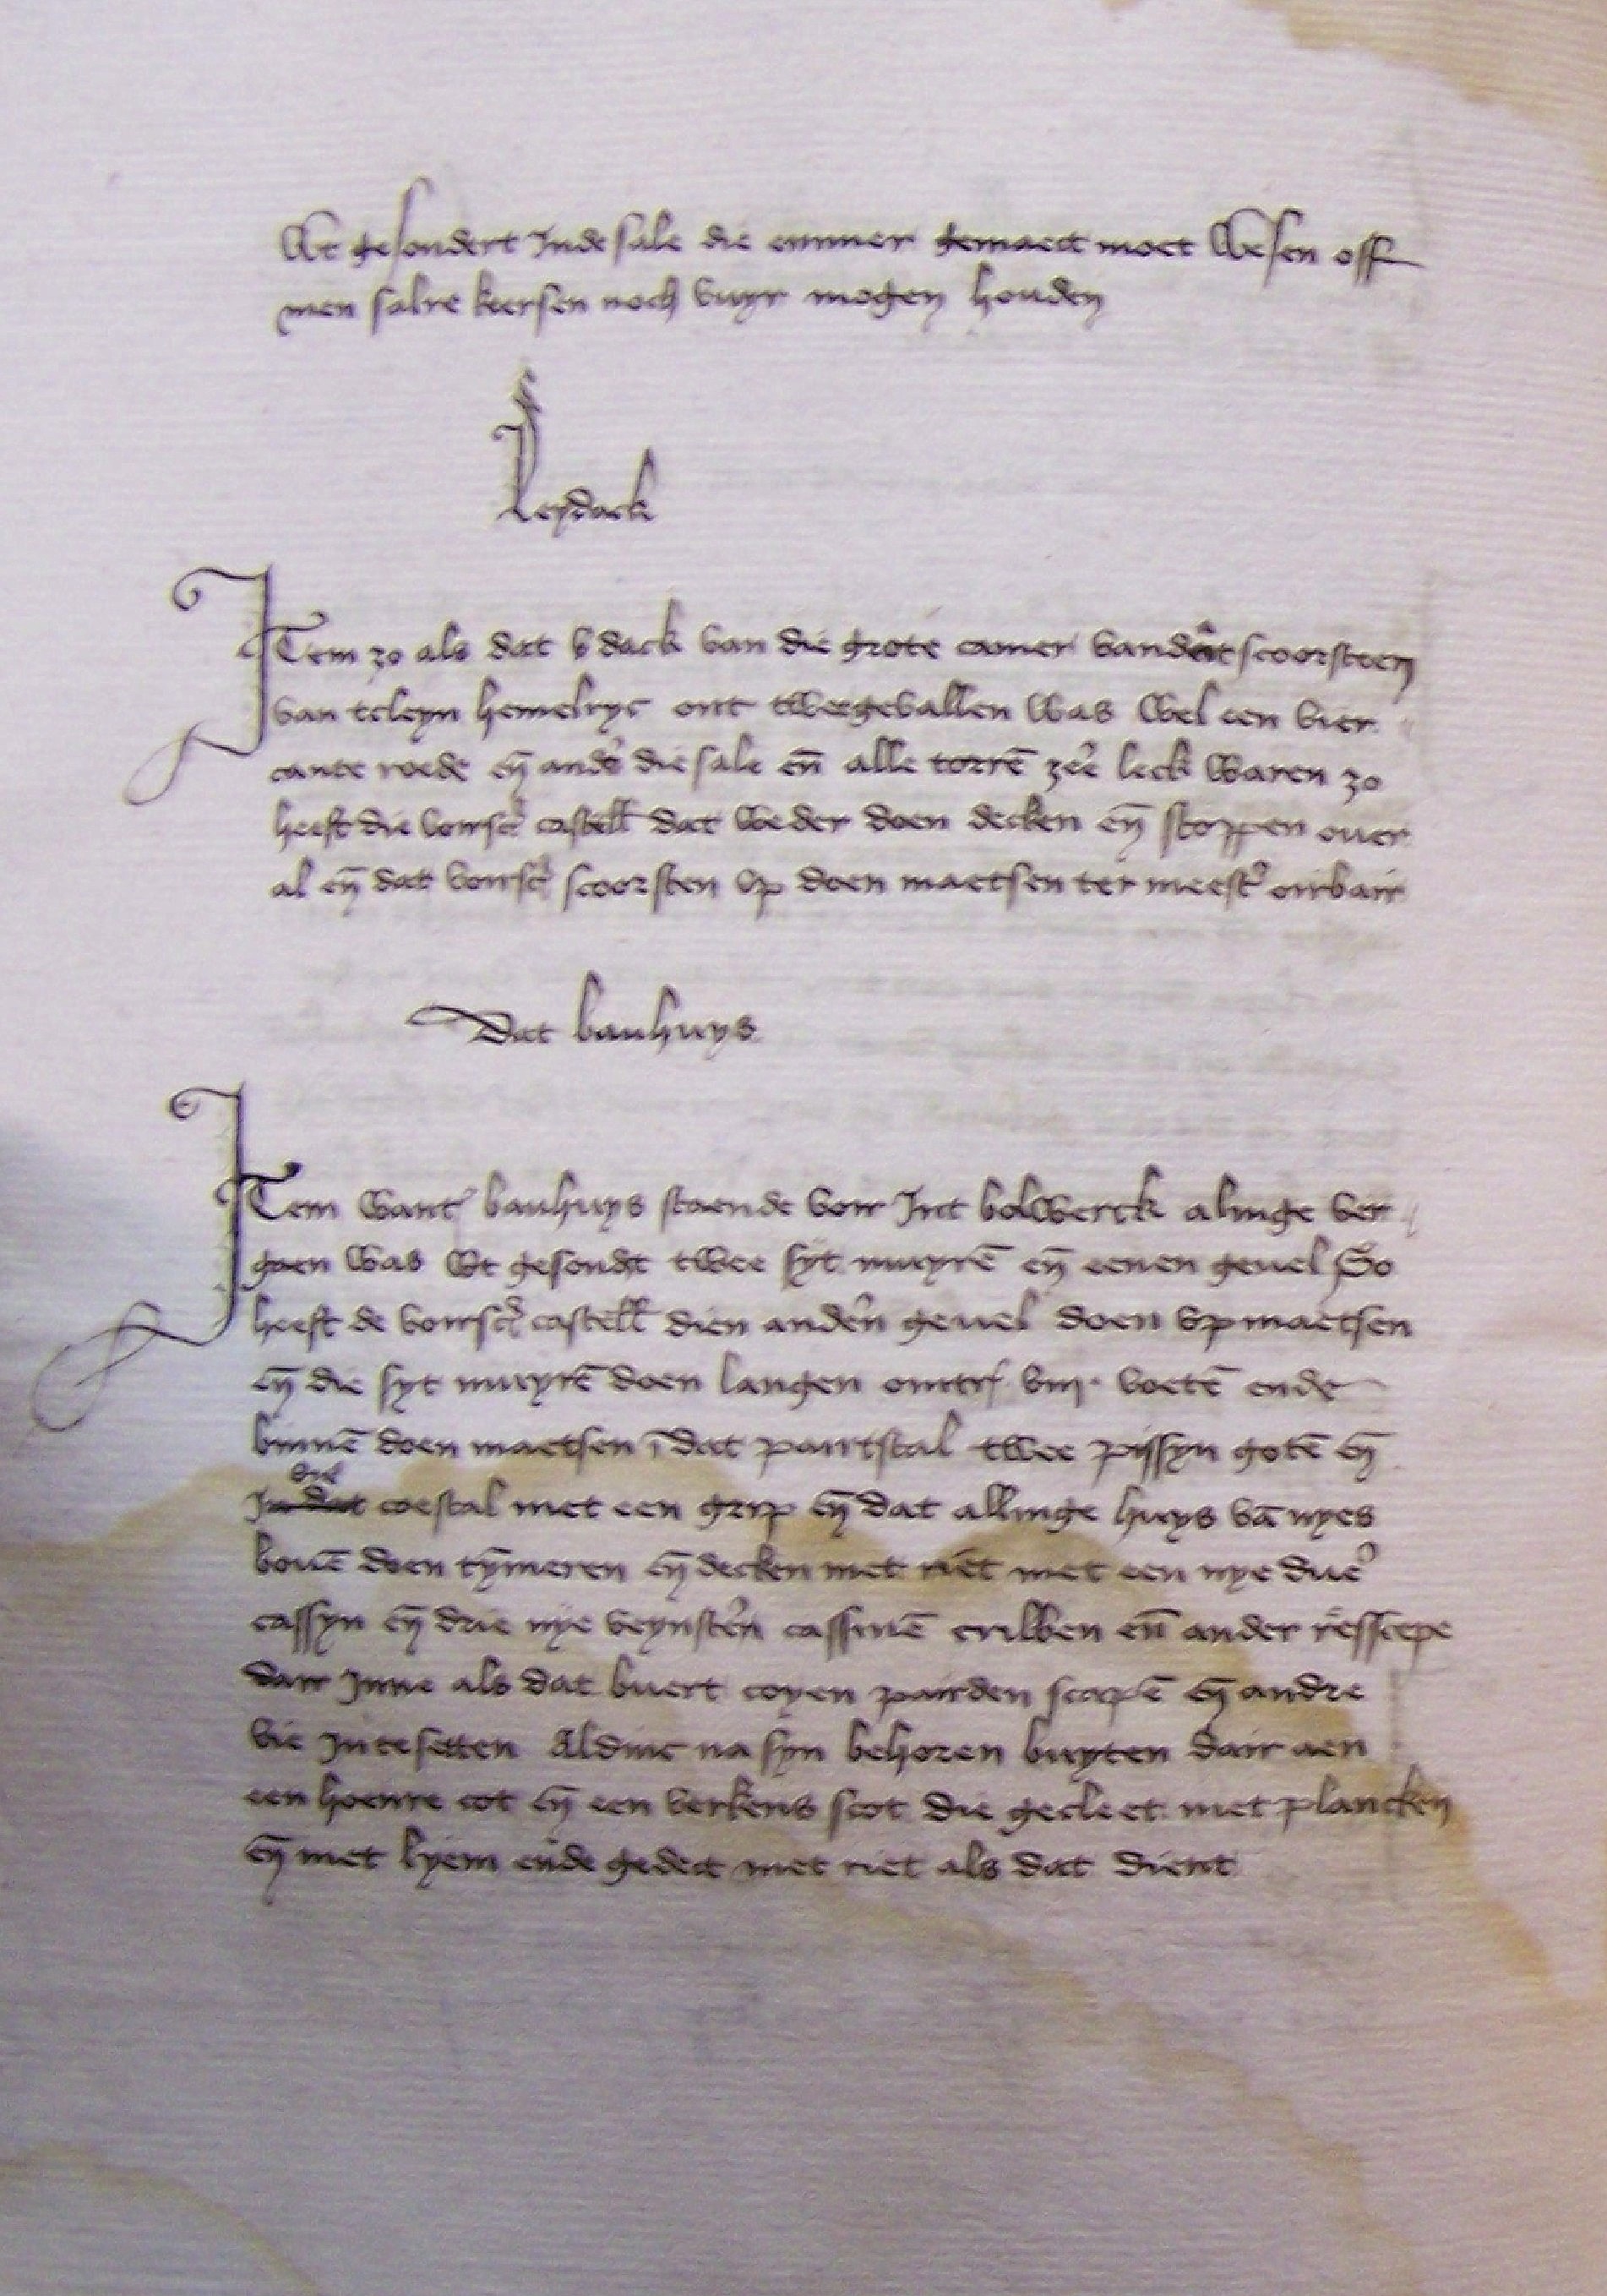 Wt gesondert Inde sale die emmer gemaect moet Wesen off
men salre keersen noch vuyr mogen houden
Leydack
Item zo als dat dack van die grote camer scoorsteen
van tcleyn hemelryc ont tweegevallen was wel een vier
cante roede eñ and' die sale eñ alle torrē zeer leck waren zo
heeft die voirsc castell dat weder doen decken eñ stoppen over
al eñ dat voirsc scoorsten vp doen maetsen ter meest' oirbair
Dat bauhuys
Item want bauhuys staende voir Int bolwerck alinge ver
gaen was wt gesondt twee syt muyrē eñ eenen gevel So
heeft de voirsc castell dien anderñ gevel doen vpmaetsen
eñ die syt muyrē doen langen omtr viij voetē ende
binnē doen maetsen ī dat pairtstal twee pissyn gotē eñ
die
In dat coestal met een grip eñ dat allinge huys vā nyes
bovē doen tȳmeren eñ decken met riet met een nye duer
cassyn eñ drie nye veynstern cassinē cribben eñ ander resscepe
dair Inne als dat buert coyen pairden scapē eñ andre
vie In te setten Aldinc na syn behoren buyten dair aen
een hoenre cot eñ een verkens scot die gecleet met plancken
eñ met lyem ende gedect met riet als dat dient